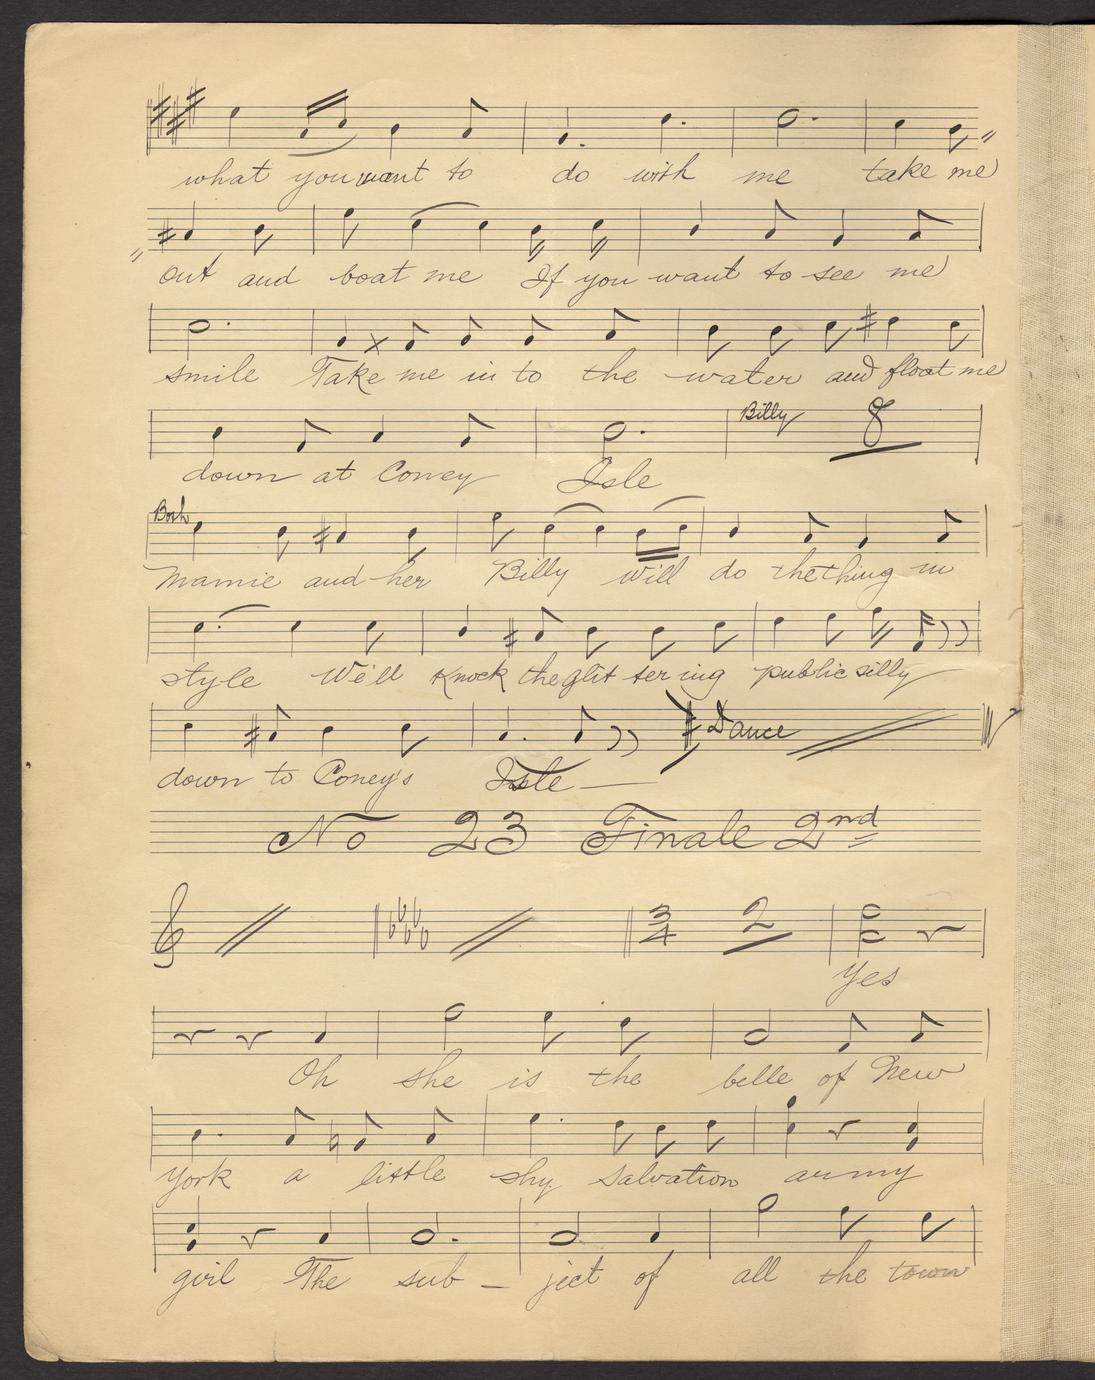 what you want to do with me take me
out and boat me If you want to see me
smile Take me in to the water and float me
Billy 8
down at Coney Isle
Both
Mamie and her Billy will do the thing in
style We'll Knock the glit ter ing public silly
Dance
down to Coney's Isle —
No 23 Finale 2nd
3/4 2
Yes
Oh she is the belle of New
York a little shy Salvation army
girl The sub — ject of all the town